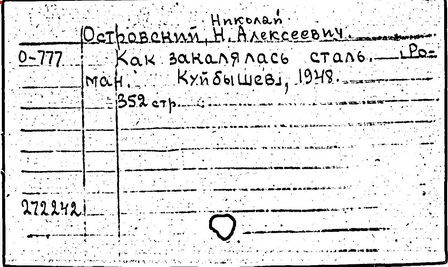 Николай
Островский, Н. Алексеевич.
О-777 Как закалялась сталь. Ро-
ман. Куйбышев, 1948.
352 стр.
272242